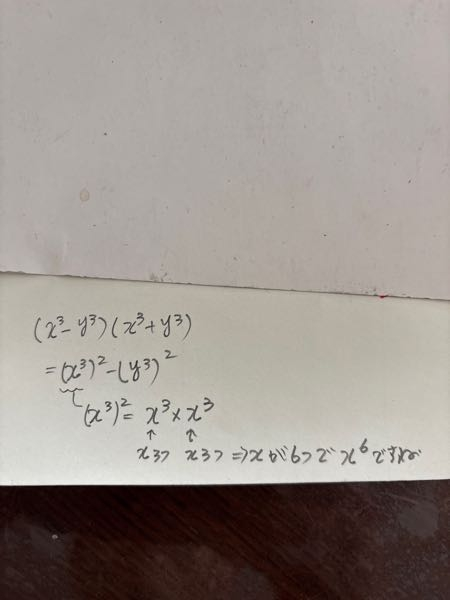 (x³-y³)(x³+y³)
=(x³)²-(y³)²
(x³)²=x³×x³
↑ ↑
x3つ x3つ⇒xが6つでx⁶ですね